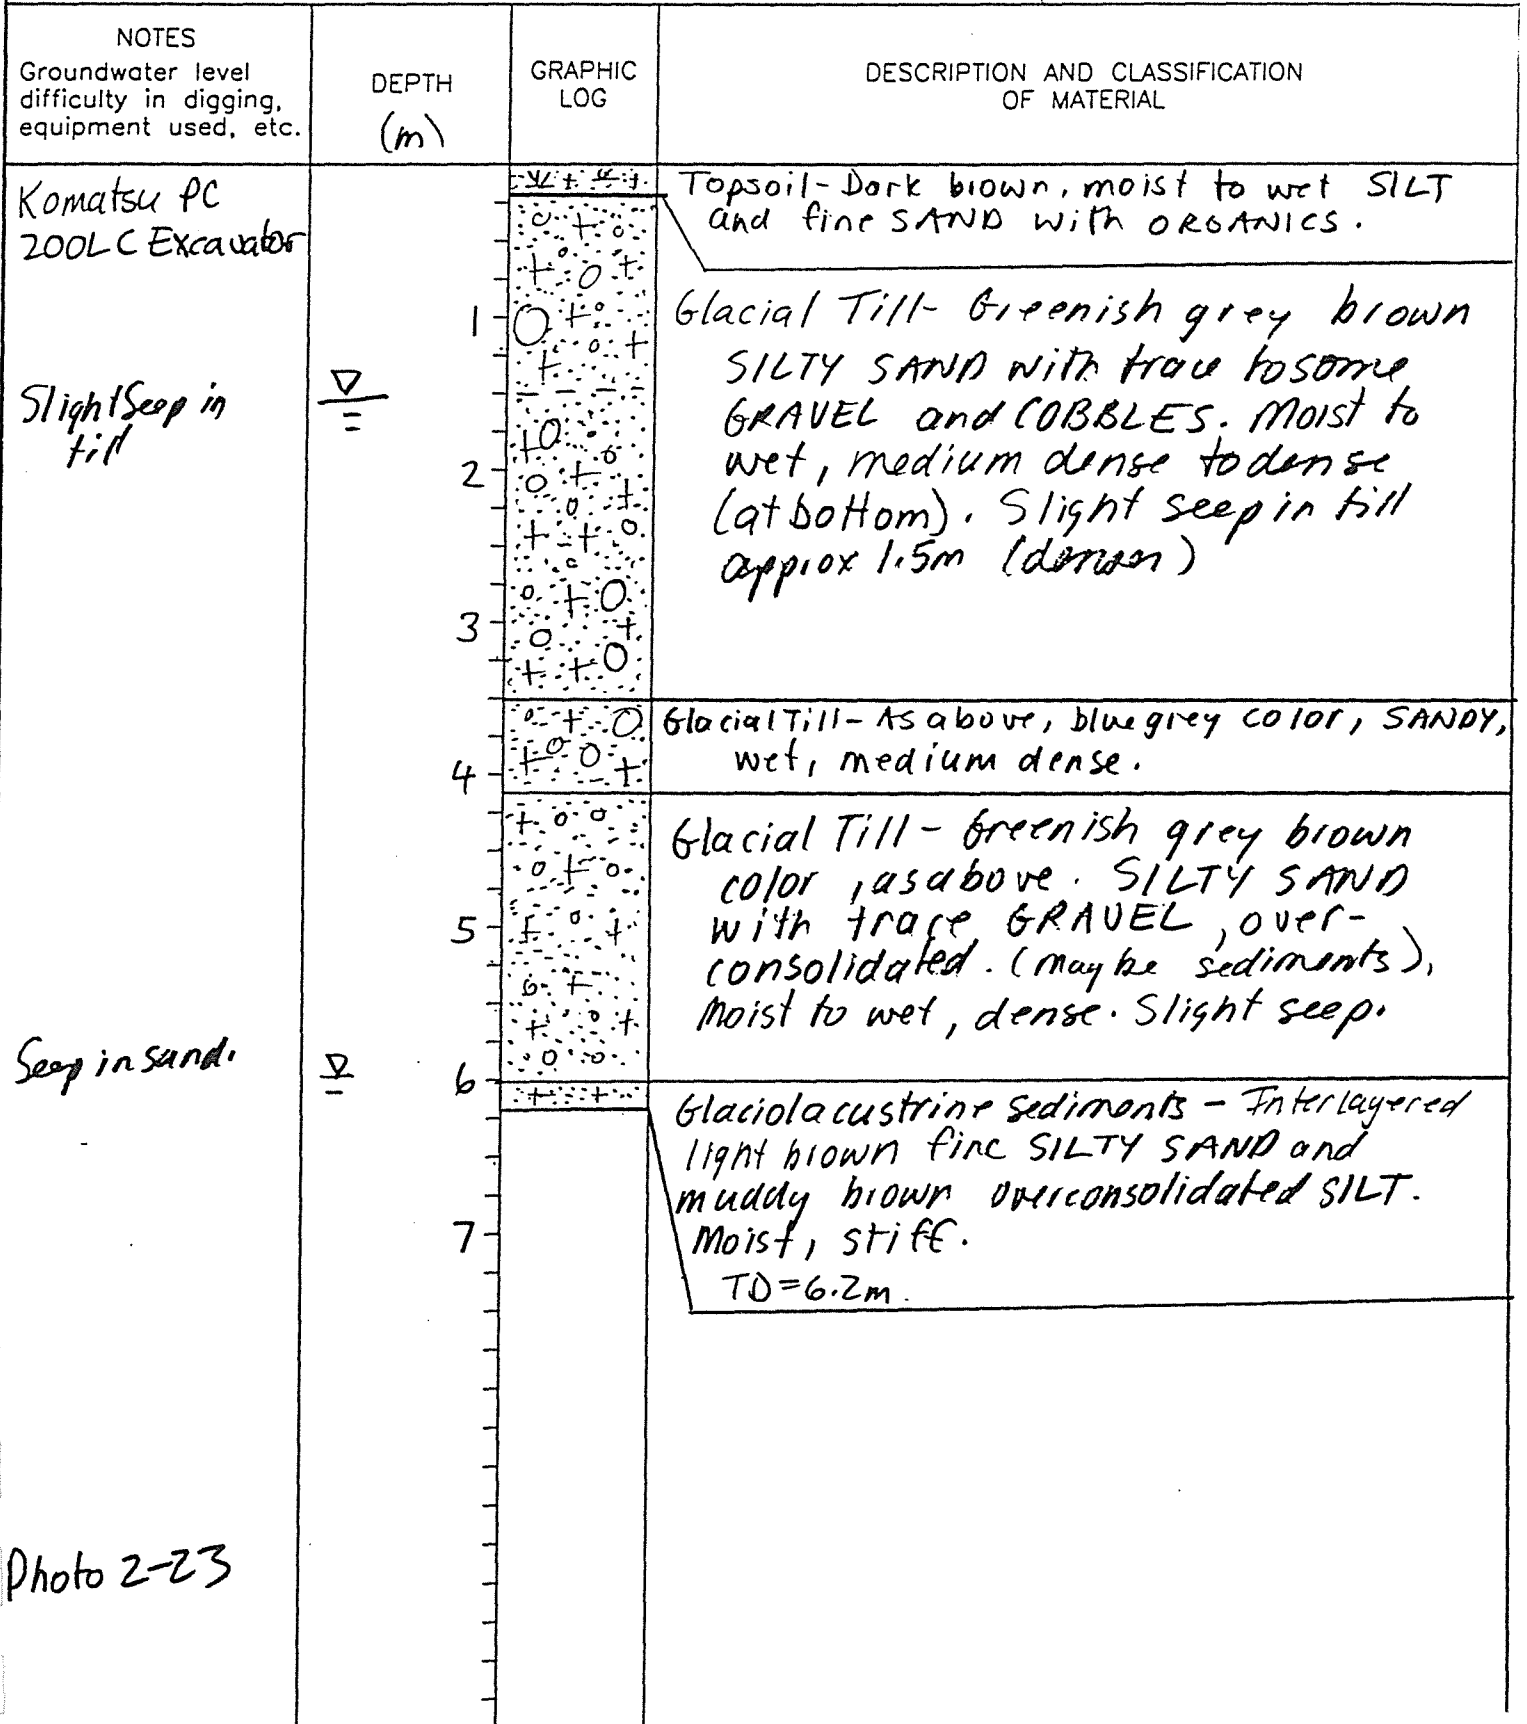 NOTES
Groundwater level
difficulty in digging,
equipment used, etc.
DEPTH
(m)
GRAPHIC
LOG
DESCRIPTION AND CLASSIFICATION
OF MATERIAL
Komatsu PC
200LC Excavator
Topsoil-Dark brown, moist to wet SILT
and fine SAND with ORGANICS.
1
Glacial Till- Greenish grey brown
SILTY SAND with trace to some
GRAVEL and COBBLES. Moist to
wet, medium dense to dense
(at bottom). Slight seep in till
approx 1.5m
Slight Seep in
till
2
3
Glacial Till- As above, blue grey color, SANDY,
wet, medium dense.
4
Glacial Till - Greenish grey brown
color, as above. SILTY SAND
with trace GRAVEL, over-
consolidated. (maybe sediments),
Moist to wet, dense. Slight seep.
5
Seep in sand.
6
Glaciolacustrine sediments - Interlayered
light brown fine SILTY SAND and
muddy brown overconsolidated SILT.
Moist, stiff.
TD=6.2m.
7
Photo 2-23